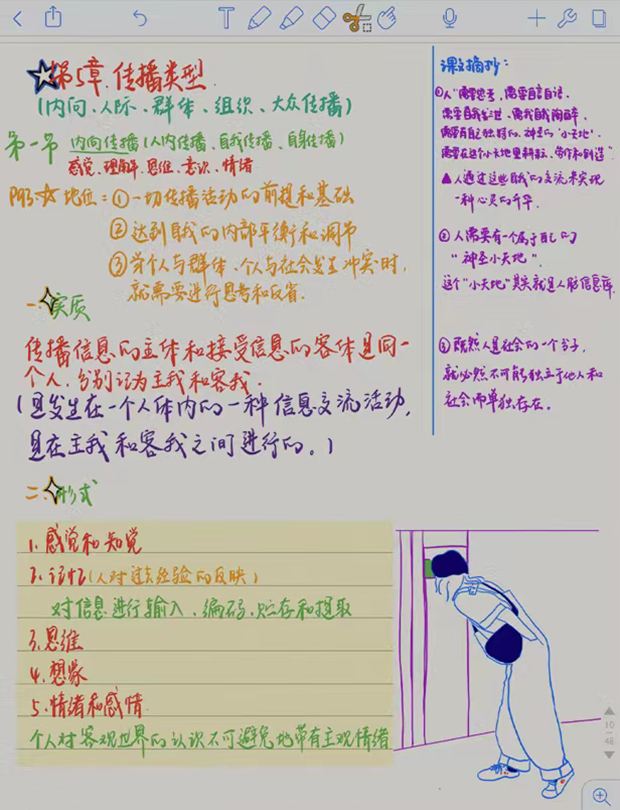 第5章.传播类型
(内向、人际、群体、组织、大众传播)
第一节 内向传播(人内传播、自我传播、自身传播)
感觉、理解、思维、意识、情绪
P93.☆地位:①一切传播活动的前提和基础
②达到自我的内部平衡和调节
③当个人与群体、个人与社会发生冲突时,
就需要进行思考和反省.
一.实质
传播信息的主体和接受信息的客体是同一
个人.分别记为主我和客我.
(是发生在一个人体内的一种信息交流活动,
是在主我和客我之间进行的。)
二.形式
1.感觉和知觉
2.记忆(人对过去经验的反映)
对信息进行输入、编码、贮存和提取
3.思维
4.想象
5.情绪和感情
个人对客观世界的认识不可避免地带有主观情绪
课文摘抄:
①人"需要思考,需要自言自语、
需要自我发泄、需我自我陶醉、
需要有自己独特的、神圣的"小天地"、
需要在这个小天地里耕耘、劳作和创造"
▲人通过这些自我的交流来实现
一种心灵的升华.
②人需要有一个属于自己的
"神圣小天地".
这个"小天地"其实就是人脑信息库
③既然人是社会的一个分子,
就必然不可能独立于他人和
社会而单独存在。
10
46